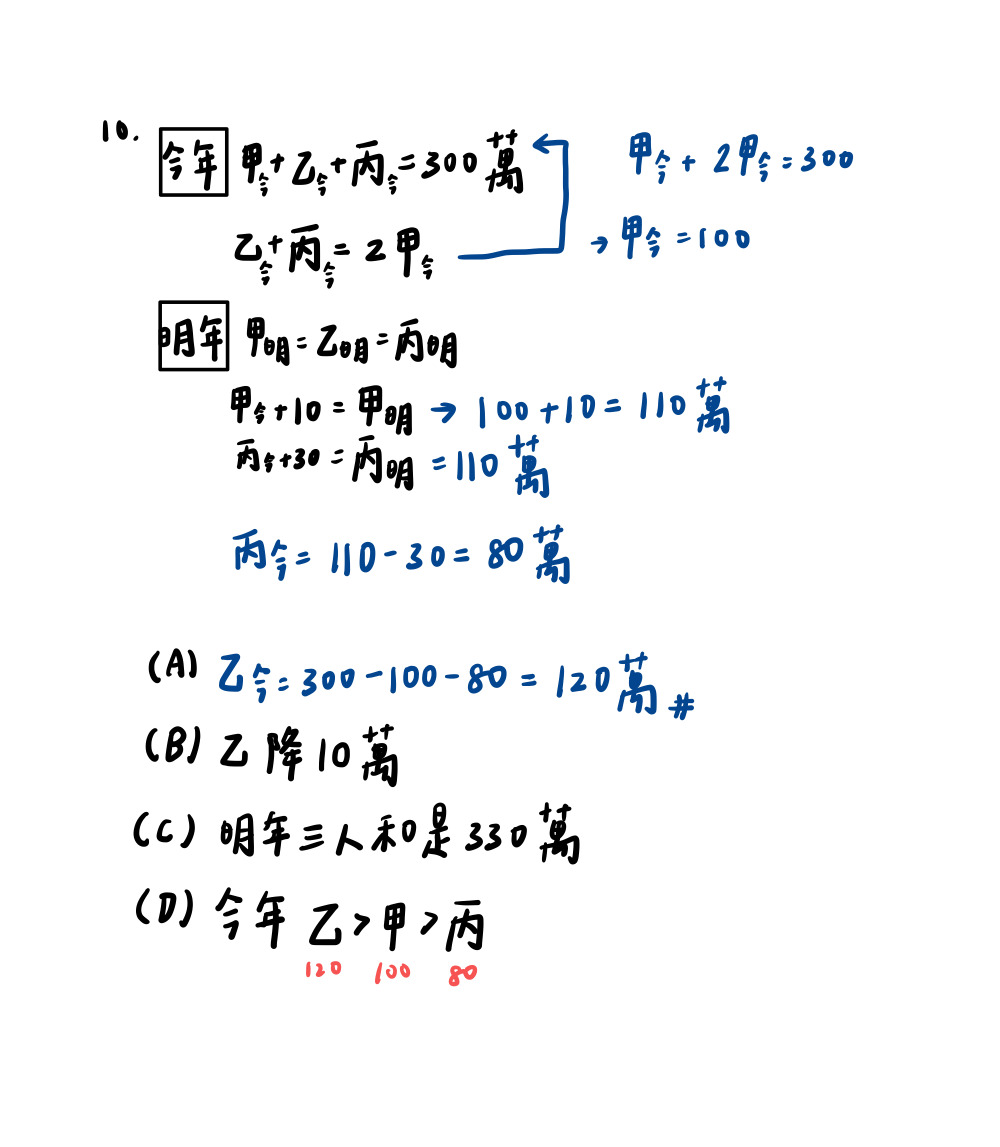 10.
今年 甲今+乙今+丙今=300萬 甲今+2甲今=300
乙今+丙今=2甲今 → 甲今=100
明年 甲明=乙明=丙明
甲今+10=甲明 → 100+10=110萬
丙今+30=丙明=110萬
丙今=110-30=80萬
(A) 乙今=300-100-80=120萬#
(B) 乙降10萬
(C) 明年三人和是330萬
(D) 今年 乙>甲>丙
120 100 80